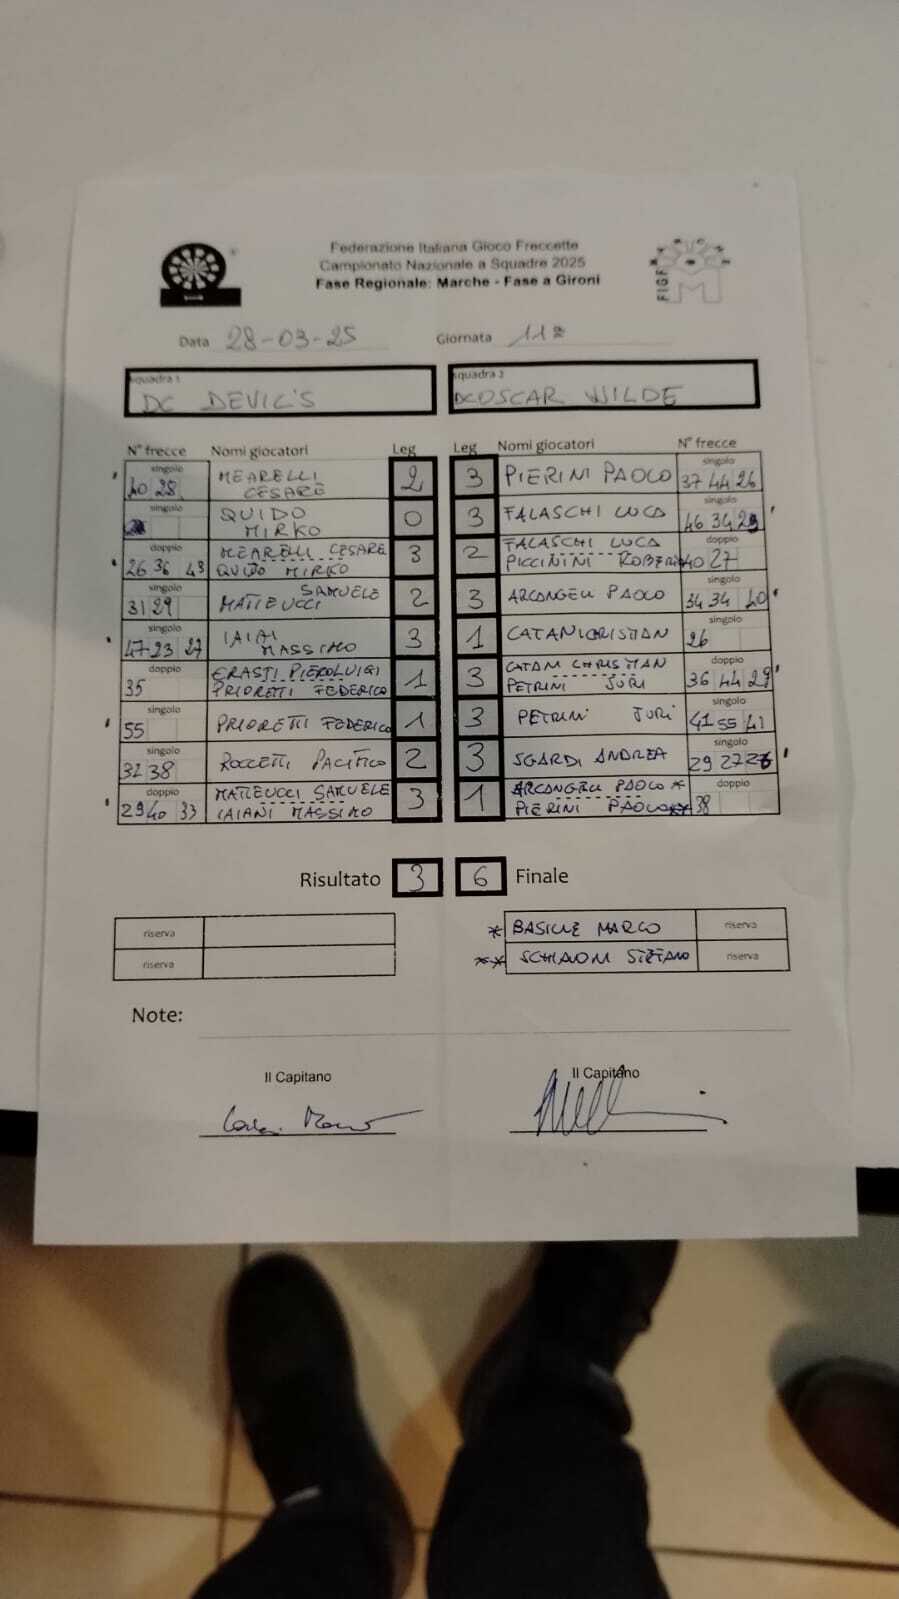 Federazione Italiana Gioco Freccette
Campionato Nazionale a Squadre 2025
Fase Regionale: Marche - Fase a Gironi
FIGF
M
Data 28-03-25 Giornata 11ª
squadra 1 squadra 2
DC DEVIL'S DC OSCAR WILDE
N° frecce Nomi giocatori Leg Leg Nomi giocatori N° frecce
singolo singolo
40 28 MEARELLI CESARE 2 3 PIERINI PAOLO 37 44 26
singolo singolo
QUIDO MIRKO 0 3 FALASCHI LUCA 46 34 29
doppio doppio
26 36 43 MEARELLI CESARE 3 2 FALASCHI LUCA 40 27
QUIDO MIRKO PICCININI ROBERTO
singolo singolo
31 29 MATTEUCCI SAMUELE 2 3 ARCANGELI PAOLO 34 34 40
singolo singolo
47 23 27 IAIANI MASSIMO 3 1 CATANI CRISTIAN 26
doppio doppio
35 ERASTI PIERLUIGI 1 3 CATANI CHRISTIAN 36 44 29
PRIORETTI FEDERICO PETRINI JURI
singolo singolo
55 PRIORETTI FEDERICO 1 3 PETRINI JURI 41 55 41
singolo singolo
32 38 ROCCETTI PACIFICO 2 3 SGARDI ANDREA 29 27 26
doppio doppio
29 40 33 MATTEUCCI SAMUELE 3 1 ARCANGELI PAOLO * 38
IAIANI MASSIMO PIERINI PAOLO **
Risultato 3 6 Finale
riserva * BASILIE MARCO riserva
riserva ** SCHIAVONI STEFANO riserva
Note:
Il Capitano Il Capitano